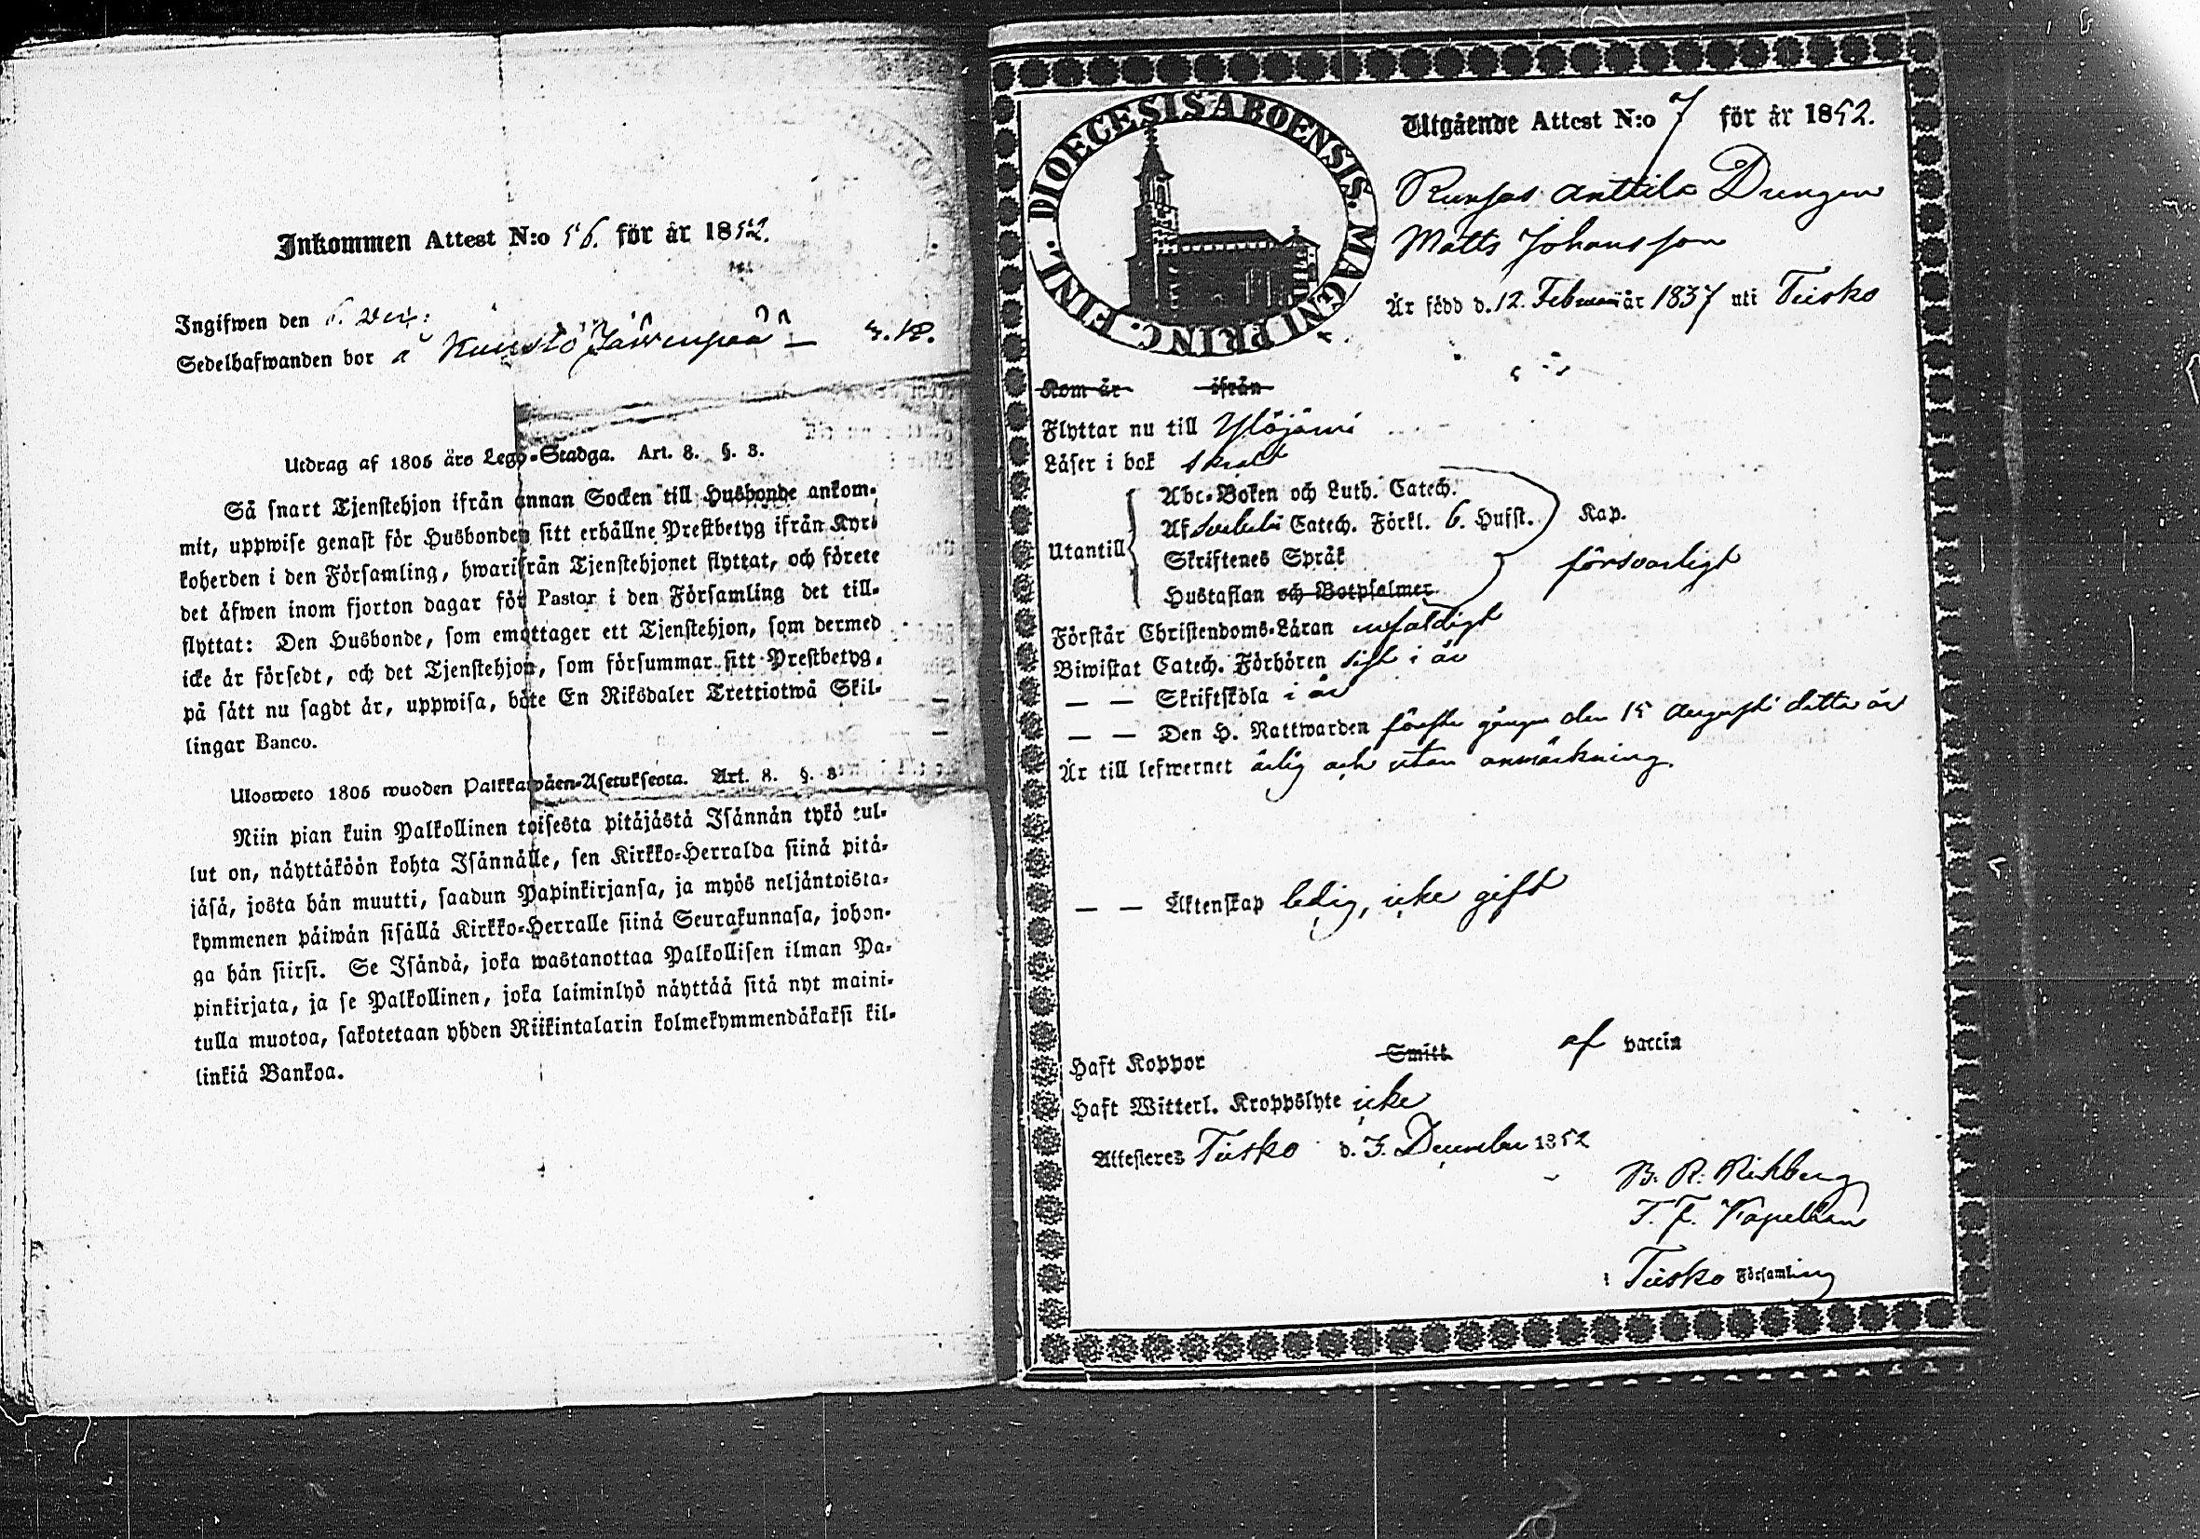 Inkommen Attest N:o 56. för år 1852.
Ingifwen den 6. Dec:
Sedelhafwanden bor å Järvenpää
Utdrag af 1805 års Lego-Stadga. Art. 8. §. 8.
Så snart Tjenstehjon ifrån annan Socken till Husbonde ankom-
mit, uppwise genast för Husbonden sitt erhållne Prestbetyg ifrån Kyr-
koherden i den Församling, hwarifrån Tjenstehjonet flyttat, och förete
det äfwen inom fjorton dagar för Pastor i den Församling det till-
flyttat: Den Husbonde, som emottager ett Tjenstehjon, som dermed
icke är försedt, och det Tjenstehjon, som försummar sitt Prestbetyg,
på sätt nu sagdt är, uppwisa, böte En Riksdaler Trettiotwå Skil-
lingar Banco.
Ulosweto 1805 wuoden Palkkawäen-Asetuksesta. Art. 8. §. 8
Niin pian kuin Palkollinen toisesta pitäjästä Isännän tykö tul-
lut on, näyttäköön kohta Isännälle, sen Kirkko-Herralda siinä pitä-
jäsä, josta hän muutti, saadun Papinkirjansa, ja myös neljäntoista-
kymmenen päiwän sisällä Kirkko-Herralle siinä Seurakunnasa, johon-
ga hän siirsi. Se Isändä, joka wastanottaa Palkollisen ilman Pa-
pinkirjata, ja se Palkollinen, joka laiminlyö näyttää sitä nyt maini-
tulla muotoa, sakotetaan yhden Riikintalarin kolmekymmendäkaksi kil-
linkiä Bankoa.
DIOECESIS ABOENSIS. MAGNI PRINC. FINL.
Utgående Attest N:o 7 för år 1852.
Runjas Anttila Drengen
Matts Johansson
Är född d. 12. Februari år 1837 uti Teisko
Kom år ifrån
Flyttar nu till Ylöjärvi
Läser i bok
Abc-Boken och Luth. Catech.
Af Svebelii Catech. Förkl. 6. Hufst. Kap.
Utantill
Skriftenes Språk
försvarligt
Hustaflan och Botpsalmer
Förstår Christendoms-Läran enfaldigt
Biwistat Catech. Förhören sist i år
— — Skriftskola i år
— — Den H. Nattwarden första gången den 15 Augusti detta år
Är till lefwernet ärlig och utan anmärkning.
— — Äktenskap ledig, icke gift
Haft Koppor Smitt af vaccin
Haft Witterl. Kroppslyte icke
Attesteras Teisko d. 3. December 1852
B. R.
T. f. Kapellan
i Teisko Församling